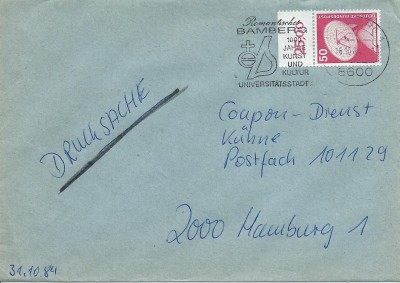 Romantisches
BAMBERG
1000
JAHRE
KUNST
UND
KULTUR
UNIVERSITÄTSSTADT
DEUTSCHE BUNDESPOST
50
8600
DRUCKSACHE
Coupon-Dienst
Kühne
Postfach 101129
2000 Hamburg 1
31.10.84